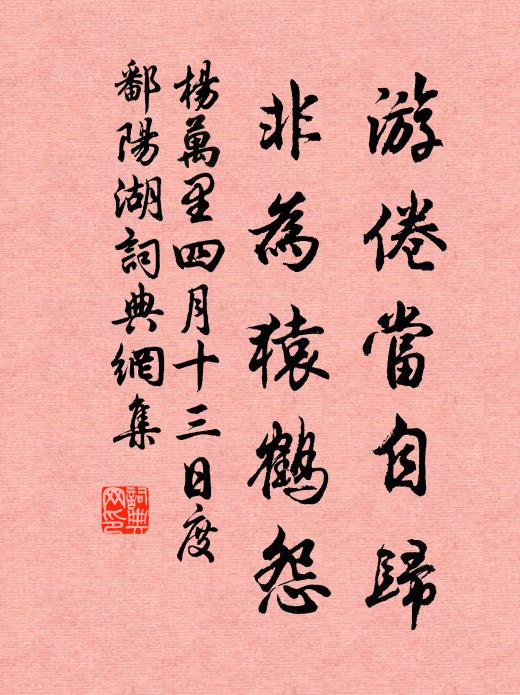 游倦當自歸
非為猿鶴怨
楊萬里四月十三日度
鄱陽湖詞典網集
詞典
网印